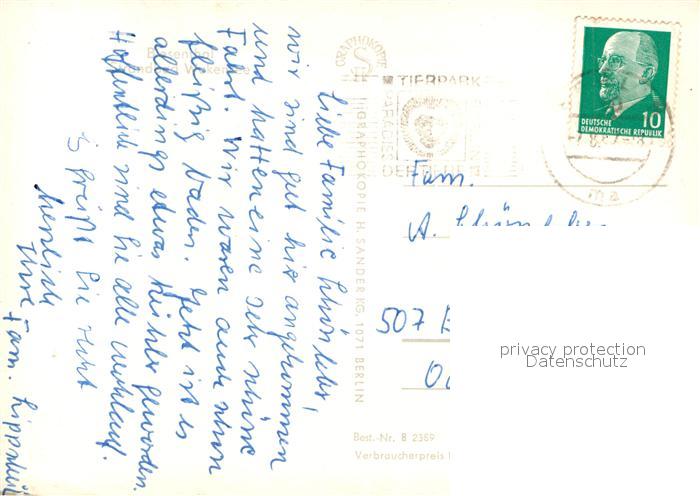 Biesenthal
Strandbad Wukensee
Liebe Familie Schönleber,
wir sind gut hier angekommen
und hatten eine sehr schöne
Fahrt. Wir waren auch schon
fleißig baden. Jetzt ist es
allerdings etwas kühler geworden.
Hoffentlich sind Sie alle wohlauf.
Es grüßt Sie recht
herzlich
Ihre
Fam.
GRAPHOKOPIE
GRAPHOKOPIE H. SANDER KG, 1071 BERLIN
TIERPARK
DER
DEUTSCHE
DEMOKRATISCHE REPUBLIK
10
Fam.
A.
507
privacy protection
Datenschutz
Best.-Nr. B 2359
Verbraucherpreis